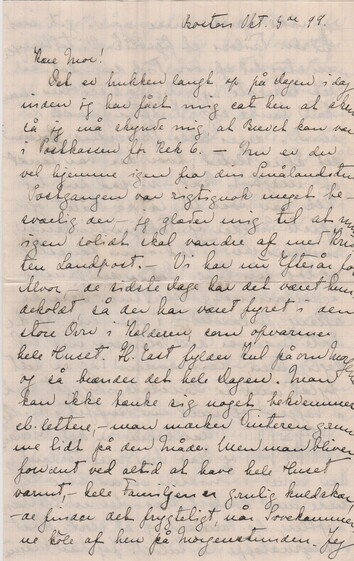 Boston Okt. 5te 99.
Kære Mor!
Det er lukken langt op på dagen i dag
inden jeg har fået mig sat hen at skrive
så jeg må skynde mig, at Brevet kan være
i Postkassen før Kek 6. — Nu er du
vel hjemme igen fra din Smålandstur
Postgangen var rigtignok meget be-
sværlig der — jeg glæder mig til at nu
igen solidt skal vandre af med Kris
ten Landpost. — Vi har nu Efterår for
Alvor — de sidste Dage har det været hun
dekoldt, så der har været fyret i den
store Ovn i Kælderen, som opvarmer
hele Huset. H. East fylder Kul på om Mor
og så brænder det hele Dagen. Man
kan ikke tænke sig noget bekvemmere
el. lettere, — man mærker Vinteren gan
ske lidt på den Måde. Men man bliver
forvant ved altid at have hele Huset
varmt, — hele Familjen er grulig kuldskær,
— de finder det frygteligt, når Sovekamme
ne er køle af hen på Morgenstunden. Jeg